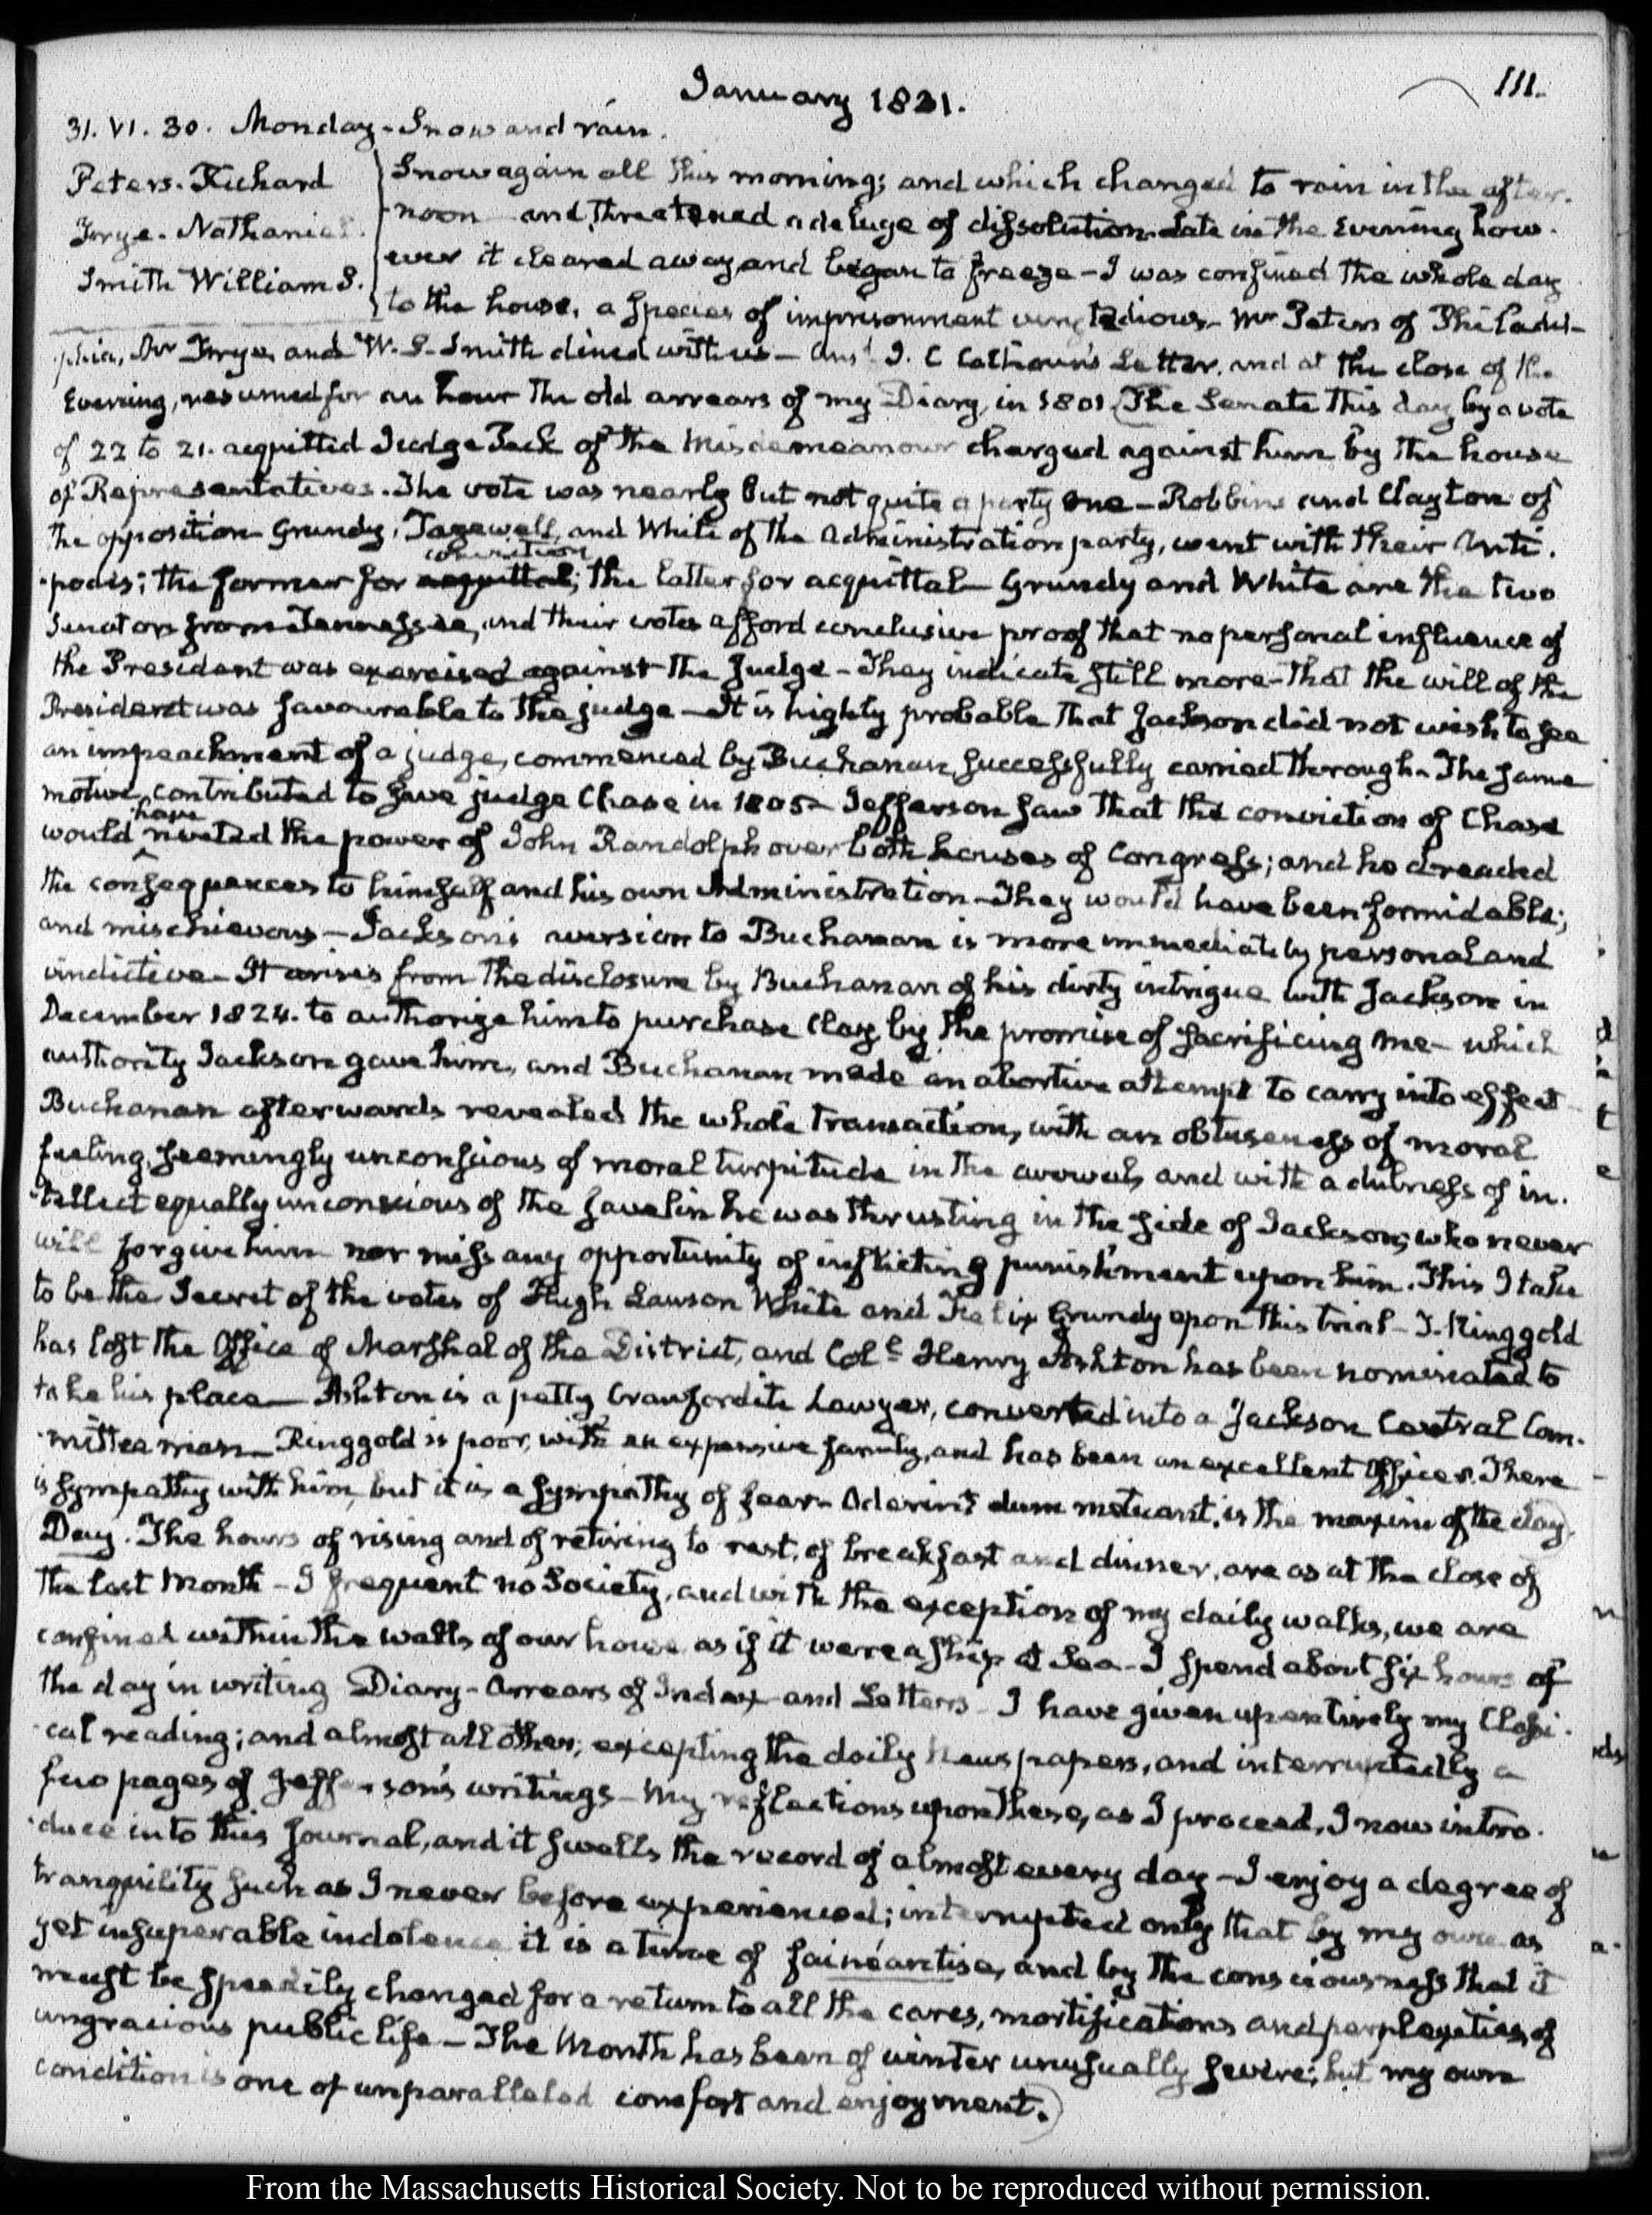 January 1831.
111.
31. VI. 30. Monday - Snow and rain.
Peters. Richard
Frye. Nathaniel.
Smith William S.
Snow again all this morning; and which changed to rain in the after-
noon and threatened a deluge of dissolution. Late in the Evening how-
ever it cleared away, and began to freeze - I was confined the whole day
to the house, a species of imprisonment very tedious - Mr Peters of Philadel-
phia, Mr Frye, and W. S. Smith dined with us - Ansd J. C Calhoun's Letter, and at the close of the
Evening, resumed for an hour the old arrears of my Diary, in 1801 (The Senate this day by a vote
of 22 to 21. acquitted Judge Peck of the Misdemeanour charged against him by the house
of Representatives. The vote was nearly but not quite a party one - Robbins and Clayton of
the opposition - Grundy, Tazewell, and White of the Administration party, went with their Anti-
conviction
podes; the former for acquittal; the latter for acquittal - Grundy and White are the two
Senators from Tennessee, and their votes afford conclusive proof that no personal influence of
the President was exercised against the Judge - They indicate still more - that the will of the
President was favourable to the judge - It is highly probable that Jackson did not wish to see
an impeachment of a judge, commenced by Buchanan, successfully carried through - The same
motive, contributed to save judge Chase in 1805 - Jefferson saw that the conviction of Chase
have
would riveted the power of John Randolph over both houses of Congress; and he dreaded
the consequences to himself and his own Administration - They would have been formidable;
and mischievous - Jackson's aversion to Buchanan is more immediately personal and
vindictive - It arises from the disclosure by Buchanan of his dirty intrigue with Jackson in
December 1824. to authorize him to purchase Clay, by the promise of sacrificing me - which
authority Jackson gave him, and Buchanan made an abortive attempt to carry into effect -
Buchanan afterwards revealed the whole transaction, with an obtuseness of moral
feeling, seemingly unconscious of moral turpitude in the avowal, and with a dulness of in-
tellect equally unconscious of the javelin he was thrusting in the side of Jackson; who never
will forgive him nor miss any opportunity of inflicting punishment upon him. This I take
to be the Secret of the votes of Hugh Lawson White and Felix Grundy upon this trial - T. Ringgold
has lost the Office of Marshal of the District, and Coll Henry Ashton has been nominated to
take his place - Ashton is a petty Crawfordite Lawyer, converted into a Jackson Central Com-
mittee man - Ringgold is poor, with an expensive family, and has been an excellent Officer. There
is sympathy with him, but it is a sympathy of fear - Oderint dum metuant, is the maxim of the day)
Day. The hours of rising and of retiring to rest, of breakfast and dinner, are as at the close of
the last Month - I frequent no Society, and with the exception of my daily walks, we are
confined within the walls of our house as if it were a ship at Sea - I spend about six hours of
the day in writing Diary - Arrears of Index - and Letters - I have given up entirely my Classi-
cal reading; and almost all other; excepting the daily Newspapers, and interruptedly a
few pages of Jefferson's writings - My reflections upon these, as I proceed, I now intro-
duce into this journal, and it swells the record of almost every day - I enjoy a degree of
tranquility such as I never before experienced; interrupted only that by my own as
yet insuperable indolence it is a time of fainéantise, and by the consciousness that it
must be speedily changed for a return to all the cares, mortifications and perplexities of
ungracious public life - The Month has been of winter unusually severe; but my own
condition is one of unparalleled comfort and enjoyment.)
From the Massachusetts Historical Society. Not to be reproduced without permission.